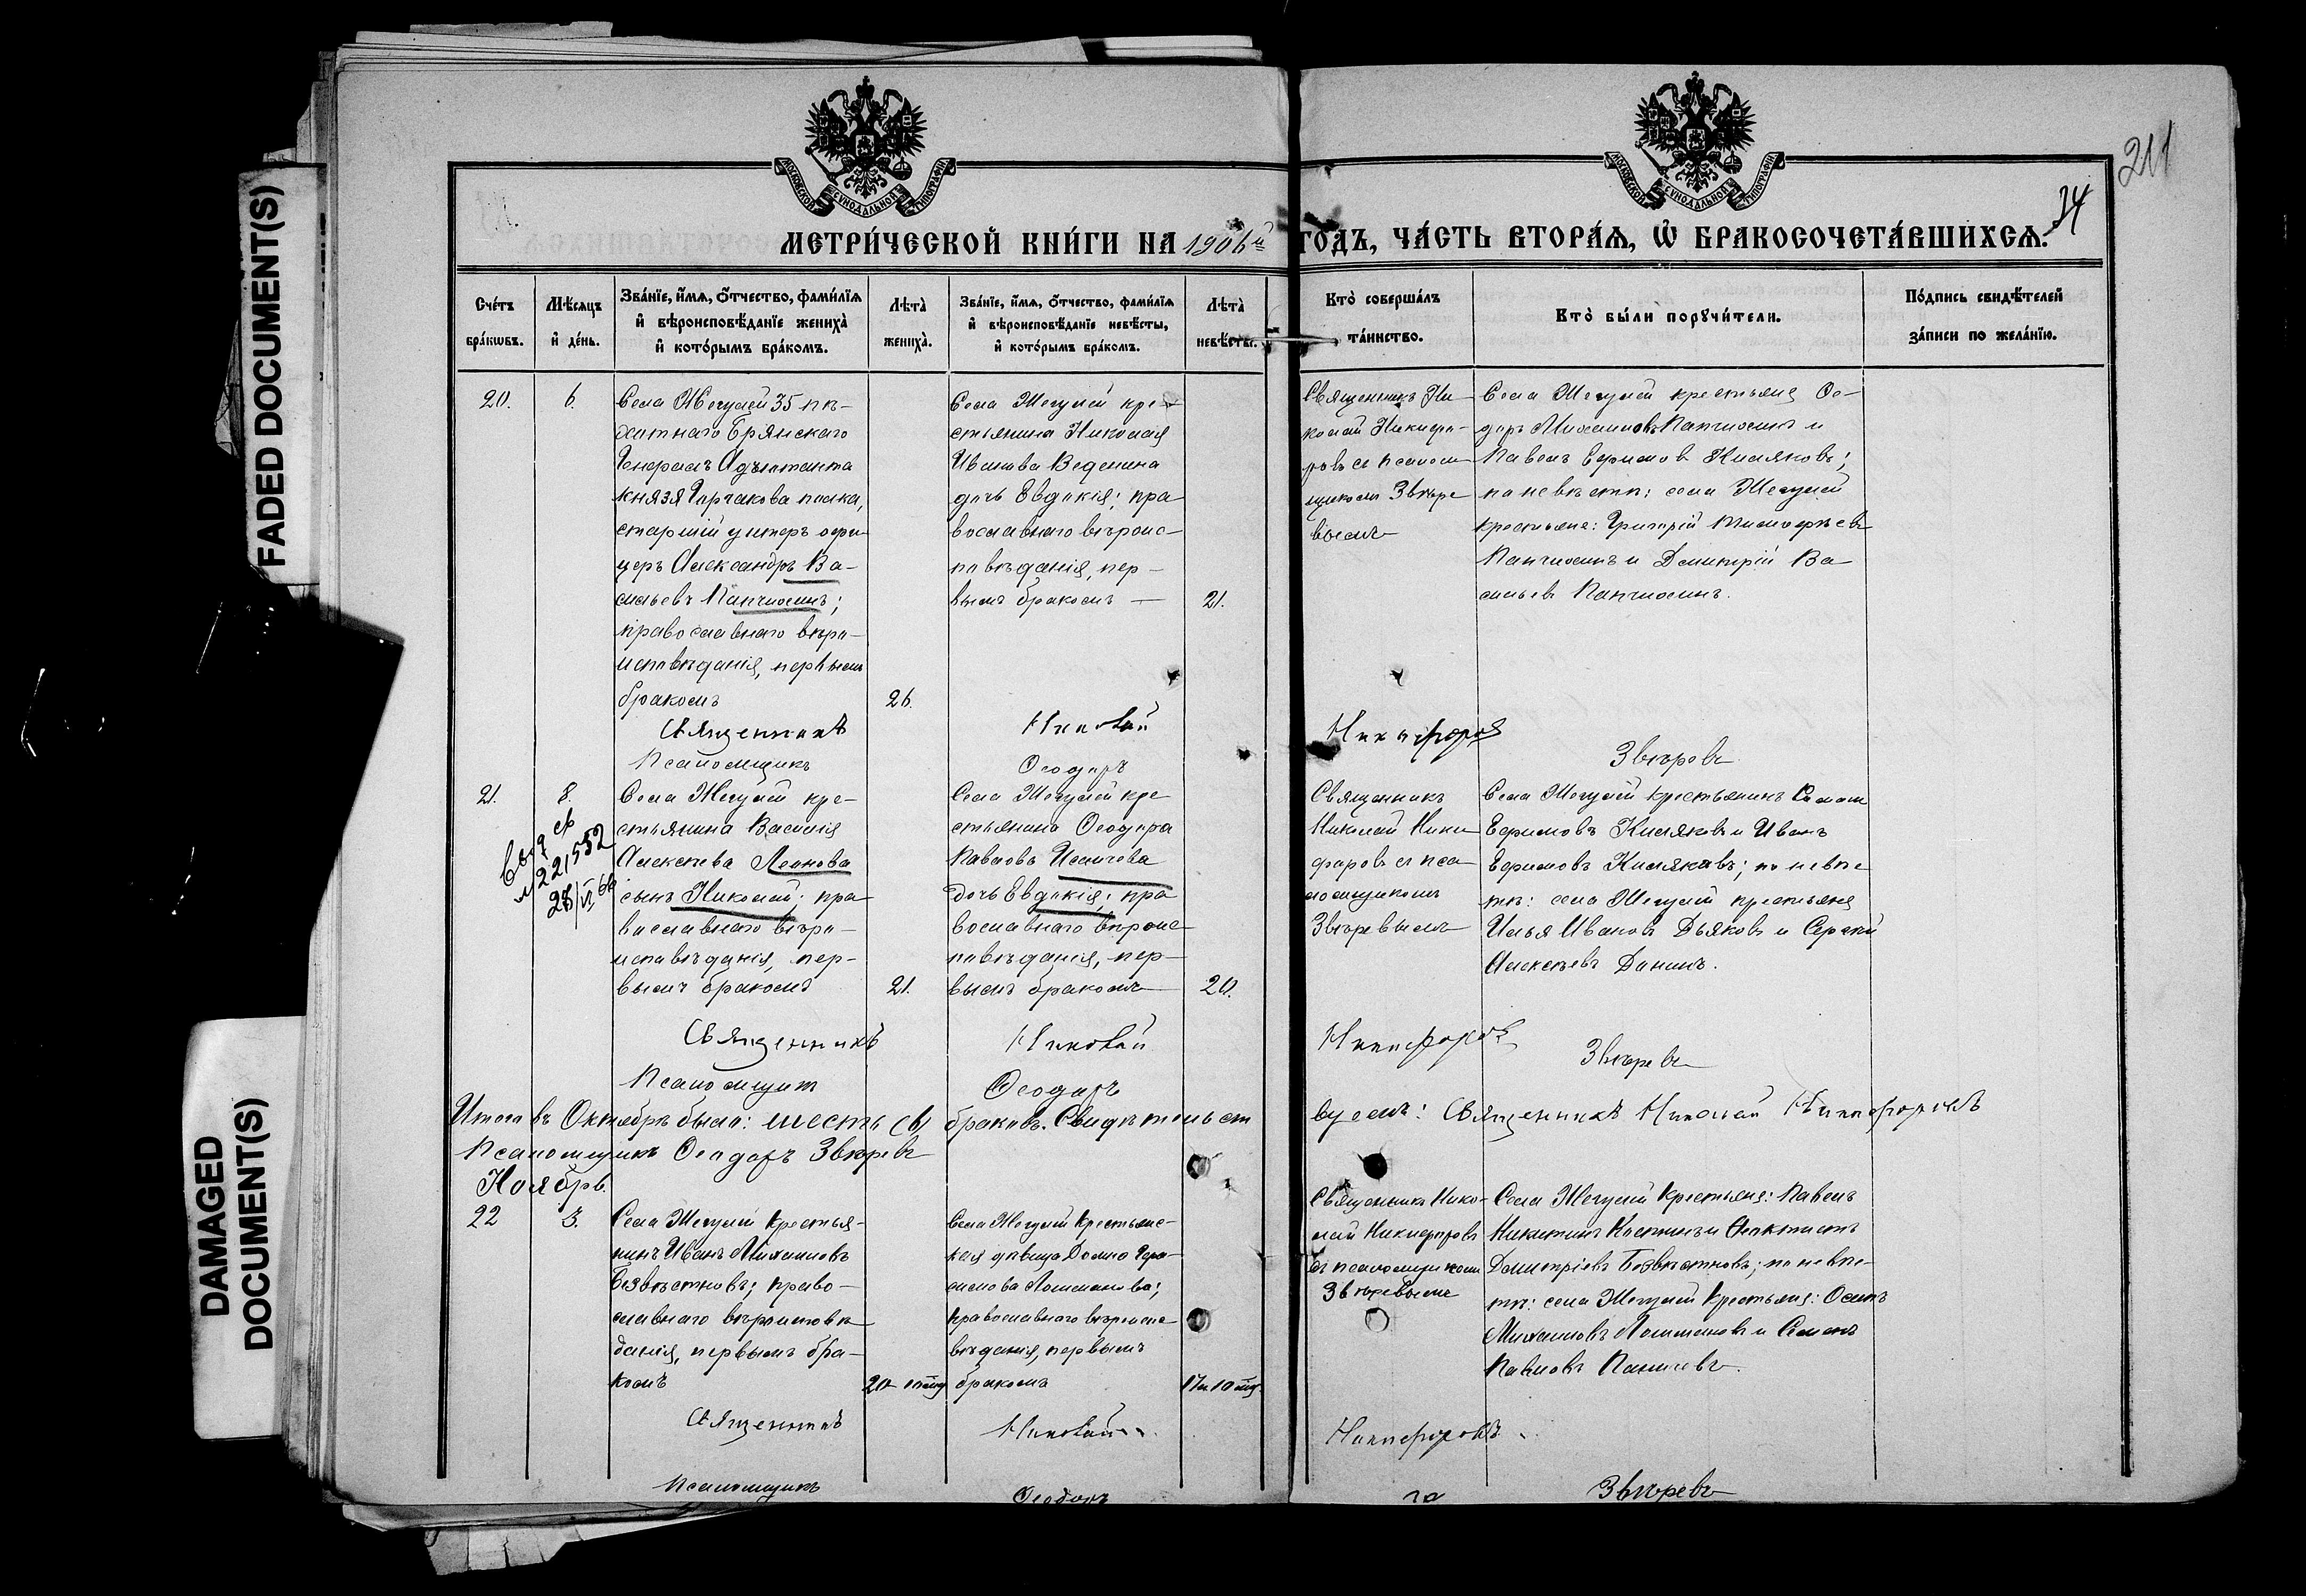 FADED DOCUMENT(S)
DAMAGED
DOCUMENT(S)
211
34
МОСКОВСКОЙ СѴНОДАЛЬНОЙ ТИПОГРАФІИ
МОСКОВСКОЙ СѴНОДАЛЬНОЙ ТИПОГРАФІИ
МЕТРИ́ЧЕСКОЙ КНИ́ГИ НА 1906й ГОДЪ, ЧА́СТЬ ВТОРА́Я, Ѡ БРАКОСОЧЕТА́ВШИХСЯ.
Сче́тъ
бра́кѡвъ.
Мѣ́сяцъ
и҆ де́нь.
Зва́нїе, и҆́мя, ѻ҆́тчество, фами́лїя
и҆ вѣроисповѣ́данїе жениха̀
и҆ кото́рымъ бра́комъ.
Лѣта̀
жениха̀.
Зва́нїе, и҆́мя, ѻ҆́тчество, фами́лїя
и҆ вѣроисповѣ́данїе невѣ́сты,
и҆ кото́рымъ бра́комъ.
Лѣта̀
невѣ́сты.
Кто̀ соверша́лъ
та́инство.
Кто̀ бы́ли порꙋчи́тели.
По́дпись свидѣ́телей
за́писи по жела́нїю.
20.
6.
Села Жегулей 35 пѣ-
хотнаго Брянскаго
Генералъ Адъютанта
князя Горчакова полка,
старшій унтеръ офи-
церъ Александръ Ва-
сильевъ Папчихинъ;
православнаго вѣро-
исповѣданія, первымъ
бракомъ
26.
Села Жегулей кре-
стьянина Николая
Иванова Веденина
дочь Евдокія; пра
вославнаго вѣроис-
повѣданія, пер-
вымъ бракомъ —
21.
Священникъ Ни-
колай Никифо-
ровъ съ псалом
щикомъ Звѣре
вымъ
Села Жегулей крестьяне Ѳе-
доръ Михаиловъ Папчихинъ и
Павелъ Ефимовъ Кисляковъ;
по невѣстѣ: села Жегулей
крестьяне: Григорій Тимофѣевъ
Папчихинъ и Димитрій Ва-
сильевъ Папчихинъ.
Священникъ Николай Никифоровъ
Псаломщикъ Ѳеодоръ Звѣревъ
21.
8.
221552
28/VI 66
Села Жегулей кре-
стьянина Василія
Алексѣева Леонова
сынъ Николай; пра
вославнаго вѣро-
исповѣданія, пер-
вымъ бракомъ
21.
Села Жегулей кре
стьянина Ѳеодора
Павлова Исаичева
дочь Евдокія; пра
вославнаго вѣроис-
повѣданія, пер-
вымъ бракомъ
20.
Священникъ
Николай Ники
форовъ съ пса
ломщикомъ
Звѣревымъ
Села Жегулей крестьянинъ
Ефимовъ Кисляковъ и Иванъ
Ефимовъ Кисляковъ; по невѣс
тѣ: села Жегулей крестьяне
Илья Ивановъ Дьяковъ и Сергѣй
Алексѣевъ Данинъ.
Священникъ Николай Никифоровъ
Псаломщикъ Ѳеодоръ Звѣревъ
Итого въ Октябрѣ было: шесть (6) браковъ. Свидѣтельствуемъ: Священникъ Николай Никифоровъ
Псаломщикъ Ѳеодоръ Звѣревъ
Ноябрь.
22
3.
Села Жегулей крестья-
нинъ Иванъ Михаиловъ
Безвѣстновъ; право-
славнаго вѣроисповѣ
данія, первымъ бра-
комъ
20
Села Жегулей крестьянс-
кая дѣвица Домна Гера-
симова Лошманова;
православнаго вѣроиспо-
вѣданія, первымъ
бракомъ
17 и 10
Священникъ Нико-
лай Никифоровъ
съ псаломщикомъ
Звѣревымъ
Села Жегулей крестьяне: Павелъ
Никитинъ Костинъ и
Димитріевъ Безвѣстновъ; по невѣс-
тѣ: села Жегулей крестьяне: Осипъ
Михаиловъ Лошмановъ и Семенъ
Павловъ
Священникъ Николай Никифоровъ
Псаломщикъ Ѳеодоръ Звѣревъ